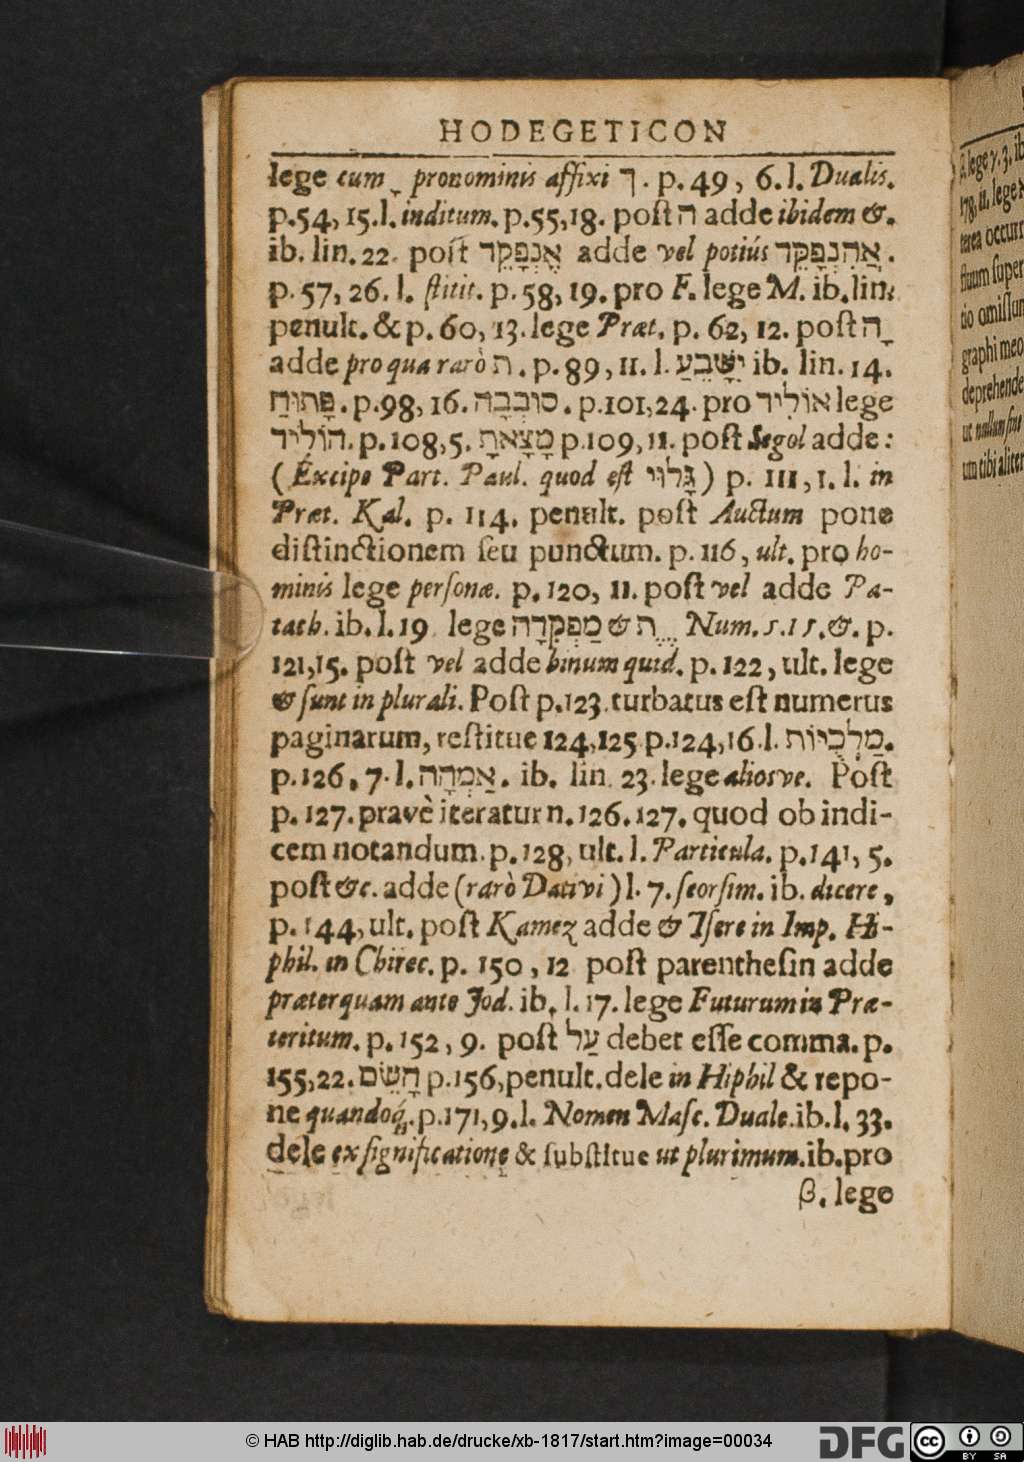 HODEGETICON
lege cum ָ pronominis affixi ך. p. 49, 6. l. Dualis.
p. 54, 15. l. inditum. p. 55, 18. post ה adde ibidem &.
ib. lin. 22. post אֶנְפָּקֵד adde vel potiús אֲהִנְפָּקֵד.
p. 57, 26. l. ſtitit. p. 58, 19. pro F. lege M. ib. lin.
penult. & p. 60, 13. lege Præt. p. 62, 12. post הָ
adde pro qua rarò ת. p. 89, 11. l. יִשָּׁבֵעַ ib. lin. 14.
פָּתוּחַ. p. 98, 16. סוּבְבָה. p. 101, 24. pro אוֹלִיד lege
הוֹלִיד. p. 108, 5. מָצָאתָ p. 109, 11. poſt Segol adde:
(Excipe Part. Paul. quod eſt גָּלוּי) p. 111, 1. l. in
Præt. Kal. p. 114. penult. poſt Auctum pone
diſtinctionem ſeu punctum. p. 116, ult. pro ho-
minis lege perſonæ. p. 120, 11. poſt vel adde Pa-
tach. ib. l. 19 lege מַפְקִדָה & ת ֶ ֶ Num. 5. 15. &. p.
121, 15. poſt vel adde binum quid. p. 122, ult. lege
& ſunt in plurali. Poſt p. 123. turbatus eſt numerus
paginarum, reſtitue 124, 125 p. 124, 16. l. מַלְכֻיּוֹת.
p. 126, 7. l. אַמְהָה. ib. lin. 23. lege aliosve. Poſt
p. 127. pravè iteratur n. 126. 127. quod ob indi-
cem notandum. p. 128, ult. l. Particula. p. 141, 5.
poſt &c. adde (rarò Dativi) l. 7. ſeorſim. ib. dicere,
p. 144, ult. poſt Kamez adde & Tſere in Imp. Hi-
phil. in Chirec. p. 150, 12 poſt parentheſin adde
præterquam ante Jod. ib. l. 17. lege Futurum in Præ-
teritum. p. 152, 9. poſt עַל debet eſſe comma. p.
155, 22. הָשֵׂם p. 156, penult. dele in Hiphil & repo-
ne quandoq́;. p. 171, 9. l. Nomen Maſc. Duale. ib. l. 33.
dele ex ſignificatione & ſubſtitue ut plurimum. ib. pro
β. lege
β. lege γ. 3. ib
178, 11. lege
terea occurr
ſtuum ſuper
tio omiſſun
graphi meo
deprehende
ut nullum ſine
um tibi aliter
© HAB http://diglib.hab.de/drucke/xb-1817/start.htm?image=00034
DFG
CC BY SA